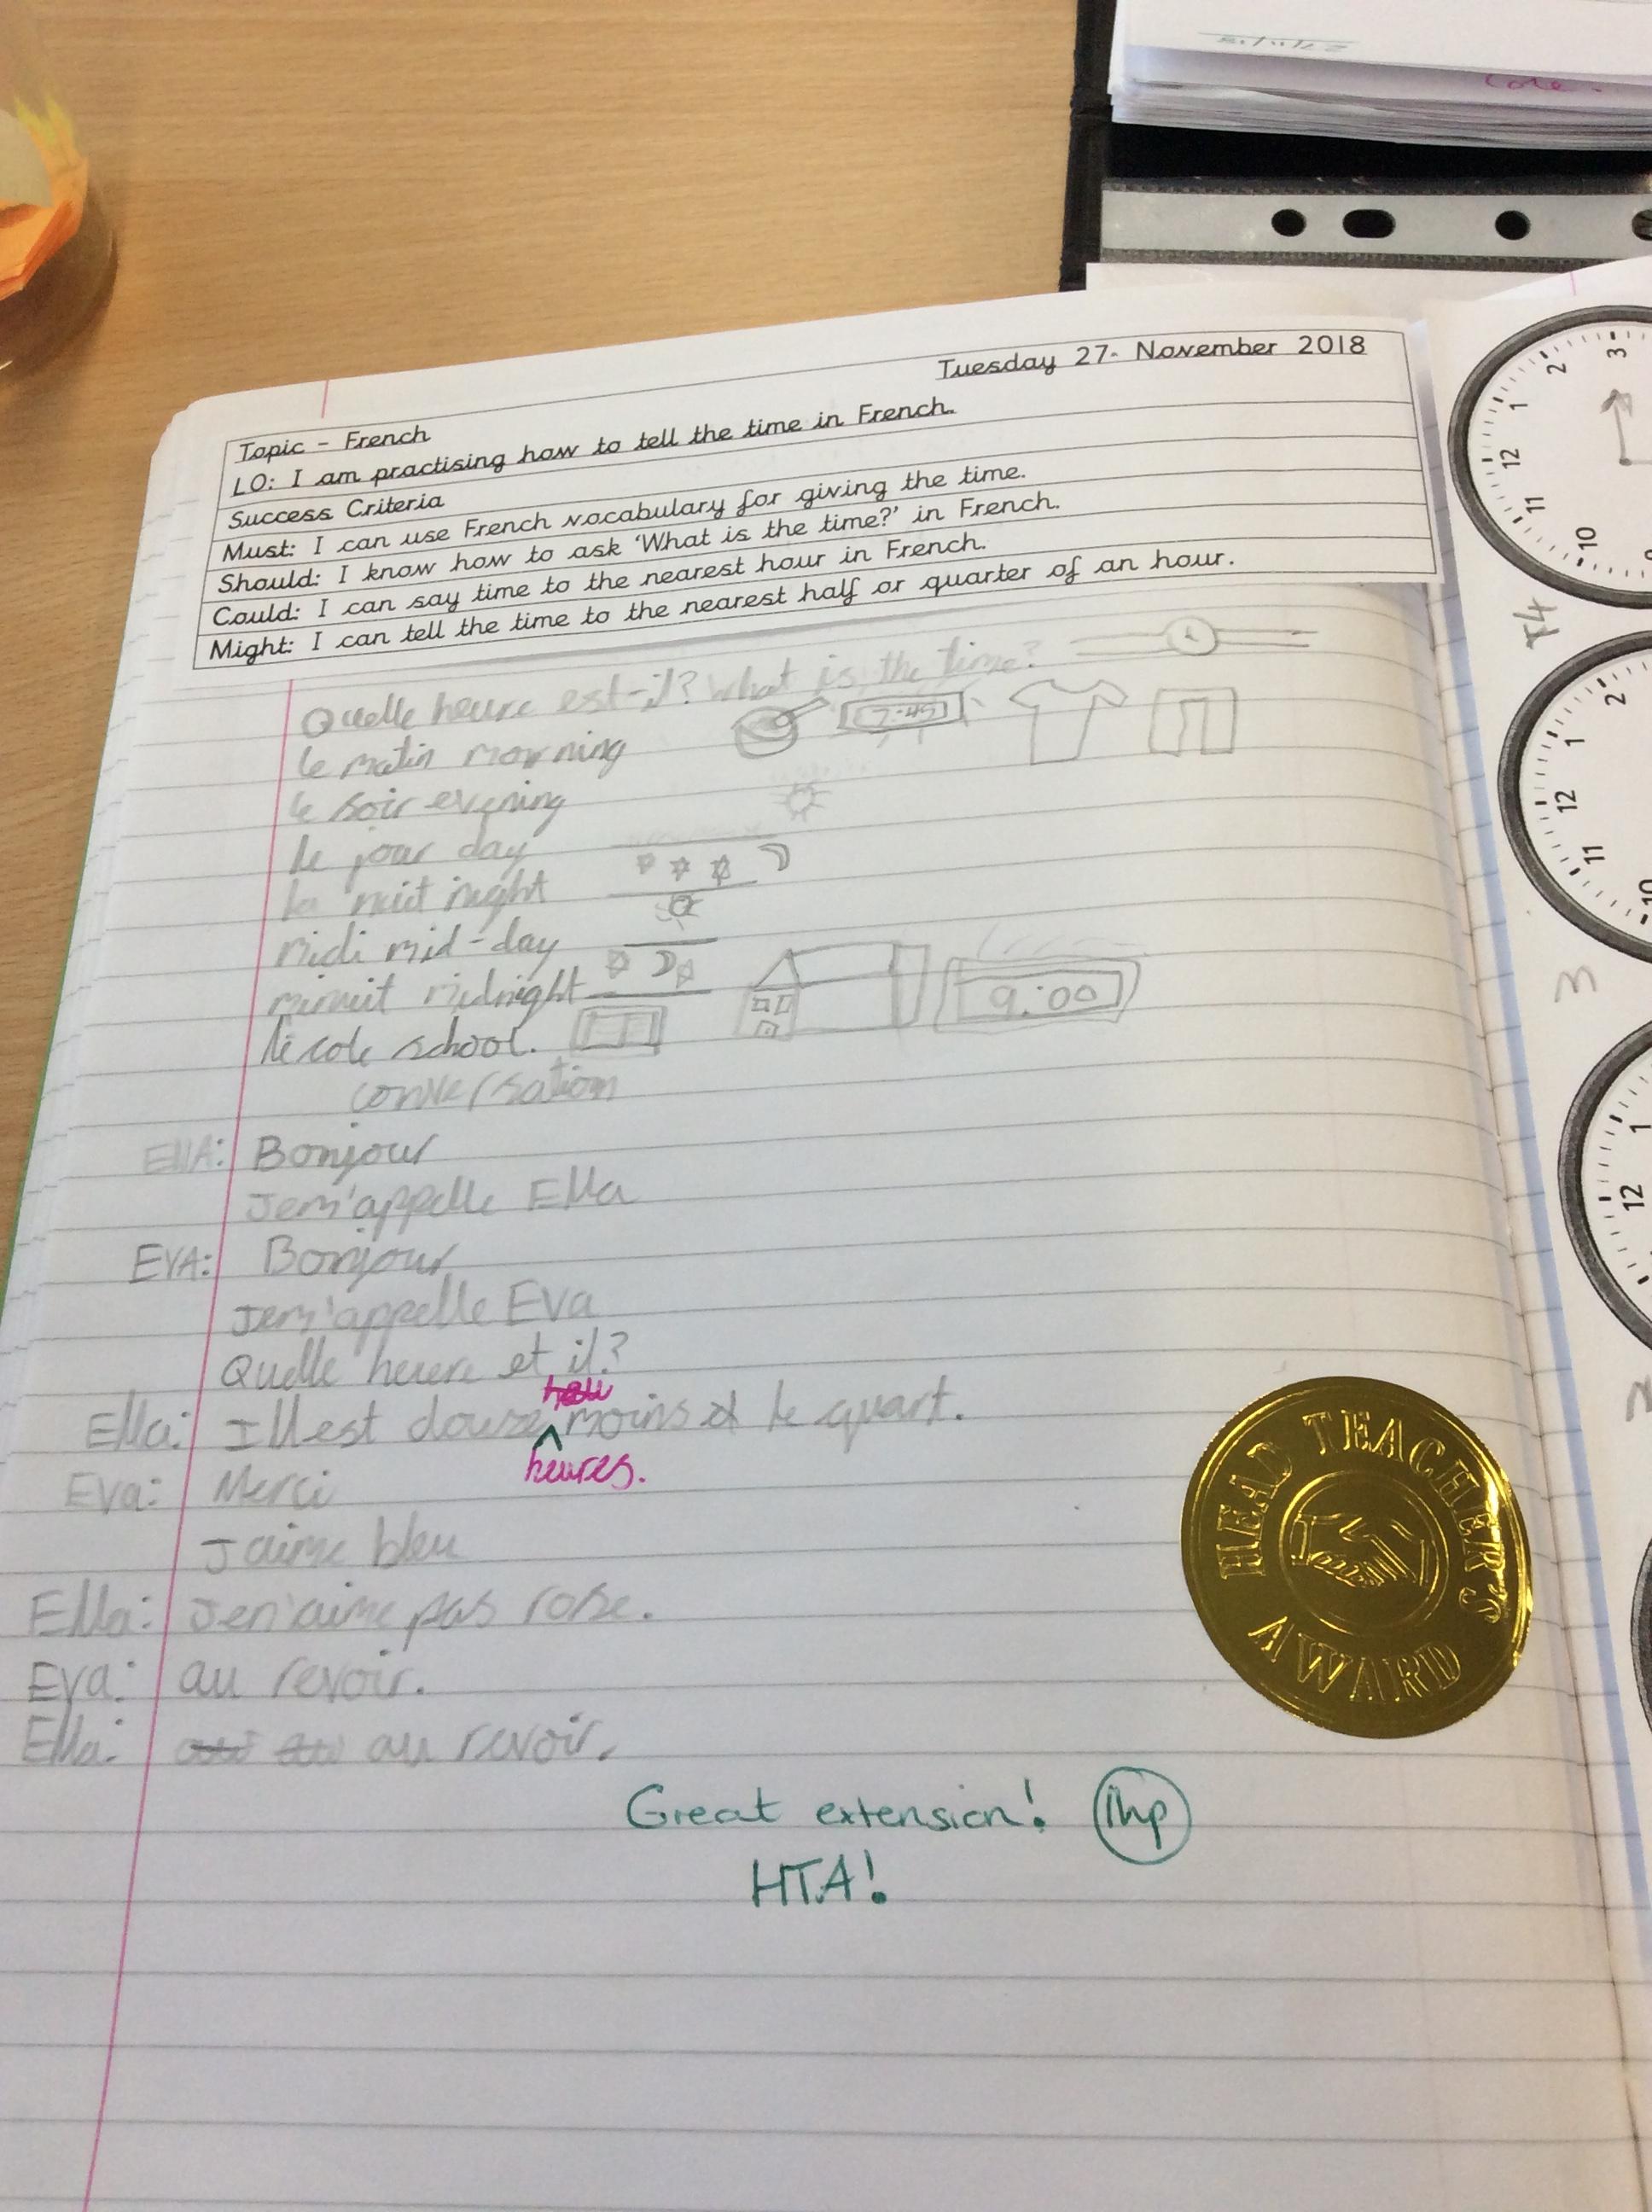 Tuesday 27- November 2018
Topic - French
LO: I am practising how to tell the time in French.
Success Criteria
Must: I can use French vocabulary for giving the time.
Should: I know how to ask 'What is the time?' in French.
Could: I can say time to the nearest hour in French.
Might: I can tell the time to the nearest half or quarter of an hour.
Quelle heure est-il? What is the time?
le matin morning 7:45
le soir evening
le jour day
la nuit night
midi mid-day
minuit midnight
l'école school. 9:00
conversation
EllA: Bonjour
Jem'appelle Ella
EVA: Bonjour
Jem'appelle Eva
Quelle heure et il?
Ella: Illest douze moins le quart.
heures.
Eva: Merci
J'aime bleu
Ella: Jen'aime pas rose.
Eva: au revoir.
Ella: au revoir.
HEAD TEACHER'S AWARD
Great extension! 1hp
HTA!
10 11 12 1 2 3
14
10 11 12 1 2
3
12 1
2